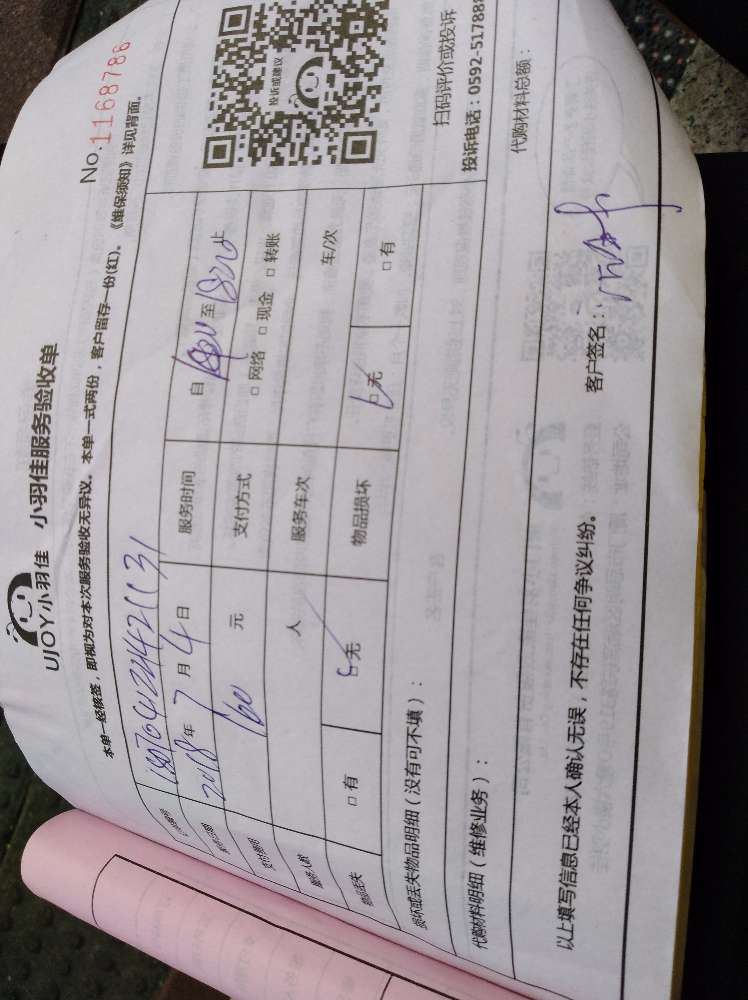 UJOY小羽佳 小羽佳服务验收单
No.1168786
本单一经核签，即视为对本次服务验收无异议。本单一式两份，客户留存一份(红)。《维保须知》详见背面。
2018年7月4日 服务时间 自 至 止
160元 支付方式 □网络 □现金 □转账
服务人数 人 服务车次 车/次
物品丢失 □有 □无 物品损坏 □无 □有
投诉或建议
扫码评价或投诉
投诉电话：0592-51788
损坏或丢失物品明细（没有可不填）：
代购材料明细（维修业务）： 代购材料总额：
以上填写信息已经本人确认无误，不存在任何争议纠纷。 客户签名：